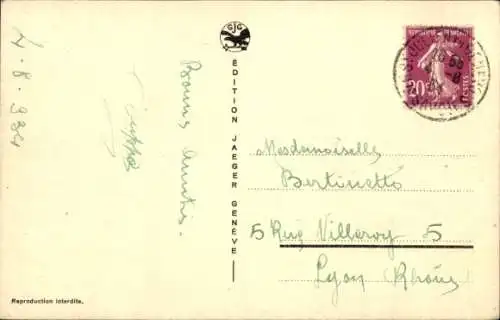 4-8-934
Bonnes Amitiés.
GJG
ÉDITION JAEGER GENÈVE
REPUBLIQUE FRANÇAISE
20
POSTES
Mesdemoiselles
Bertinetto
5 Rue Villeroy 5
Lyon Rhône
Reproduction interdite.